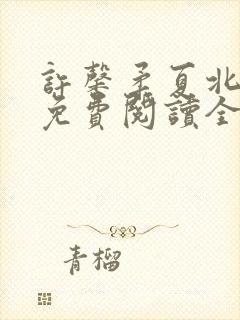 許馨予夏北
免費閱讀全
青榴